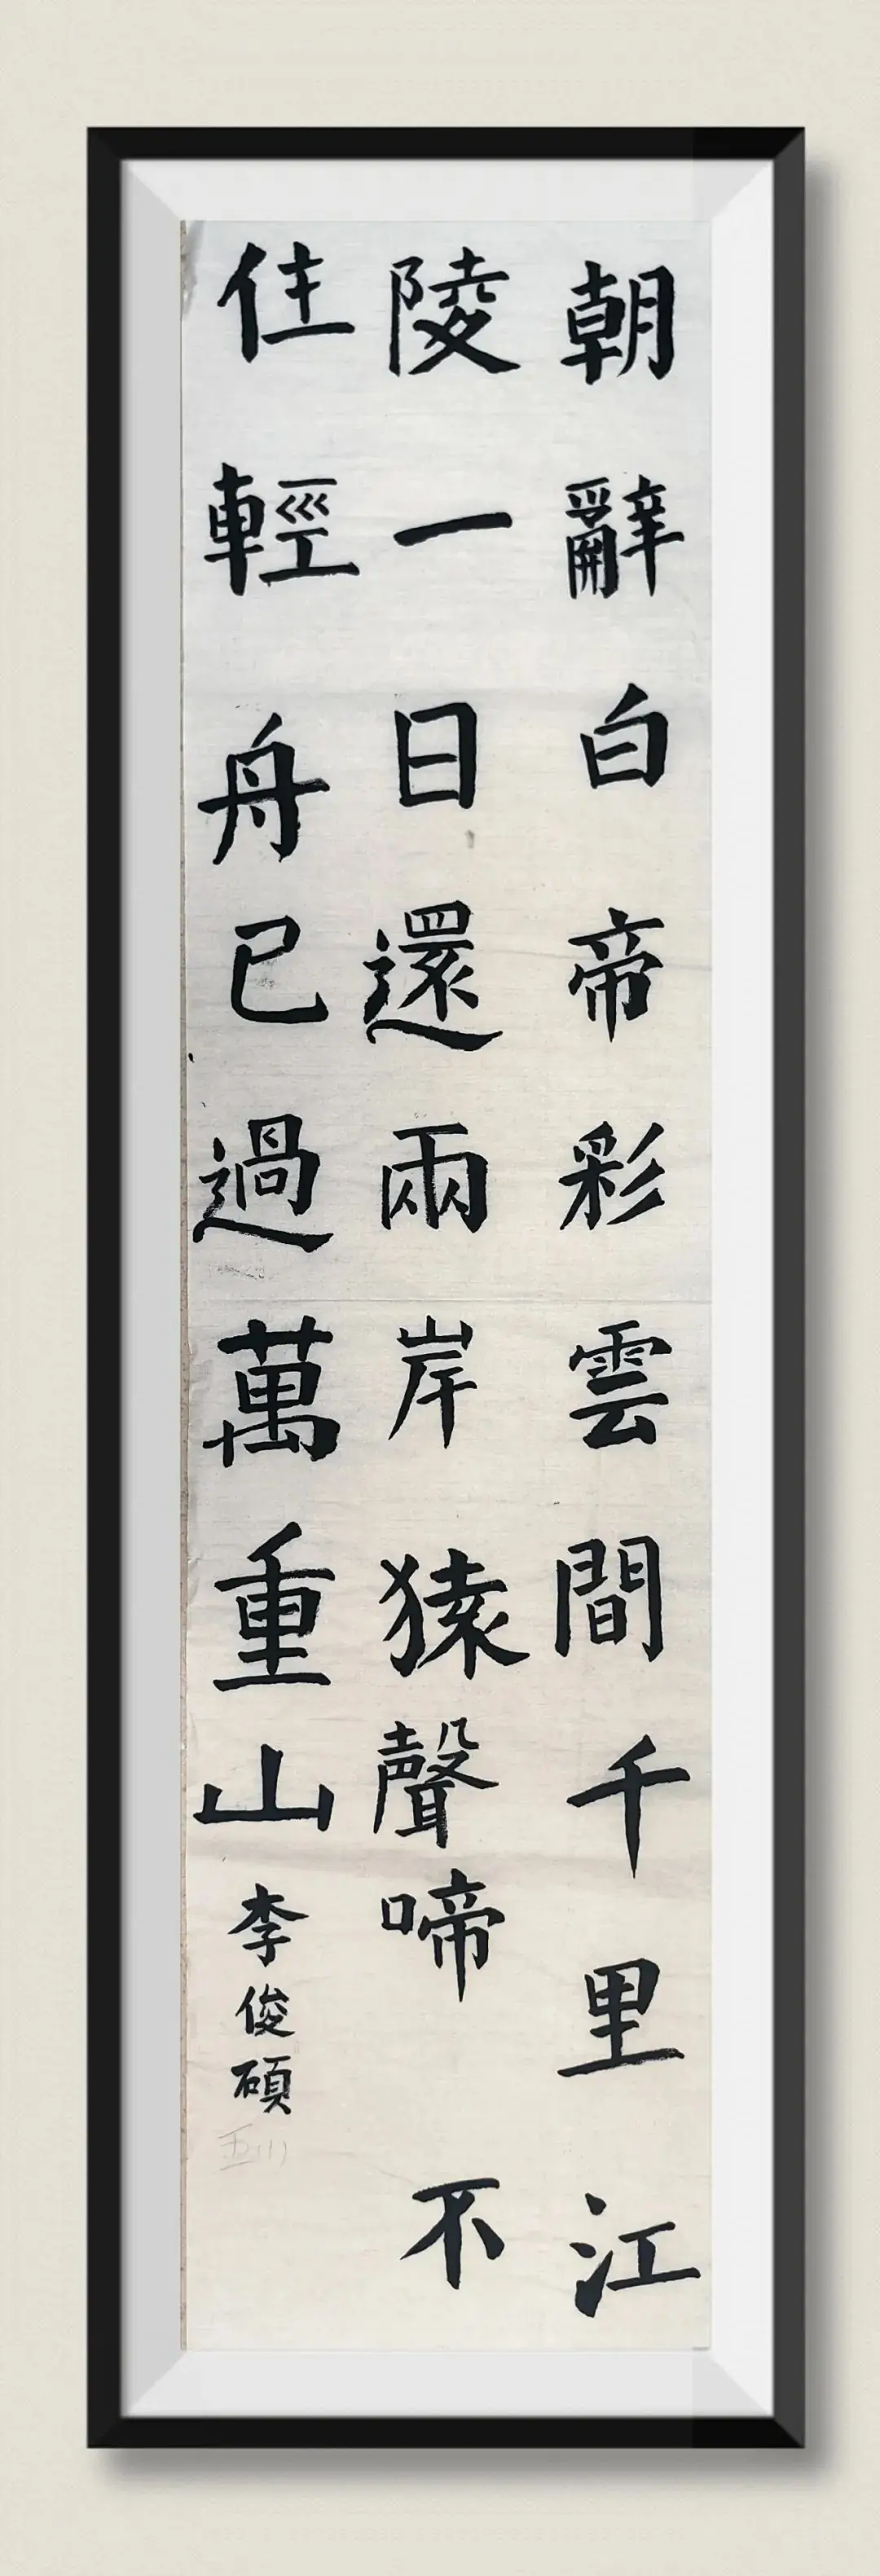 朝辭白帝彩雲間千里江
陵一日還兩岸猿聲啼不
住輕舟已過萬重山李俊碩
五(1)